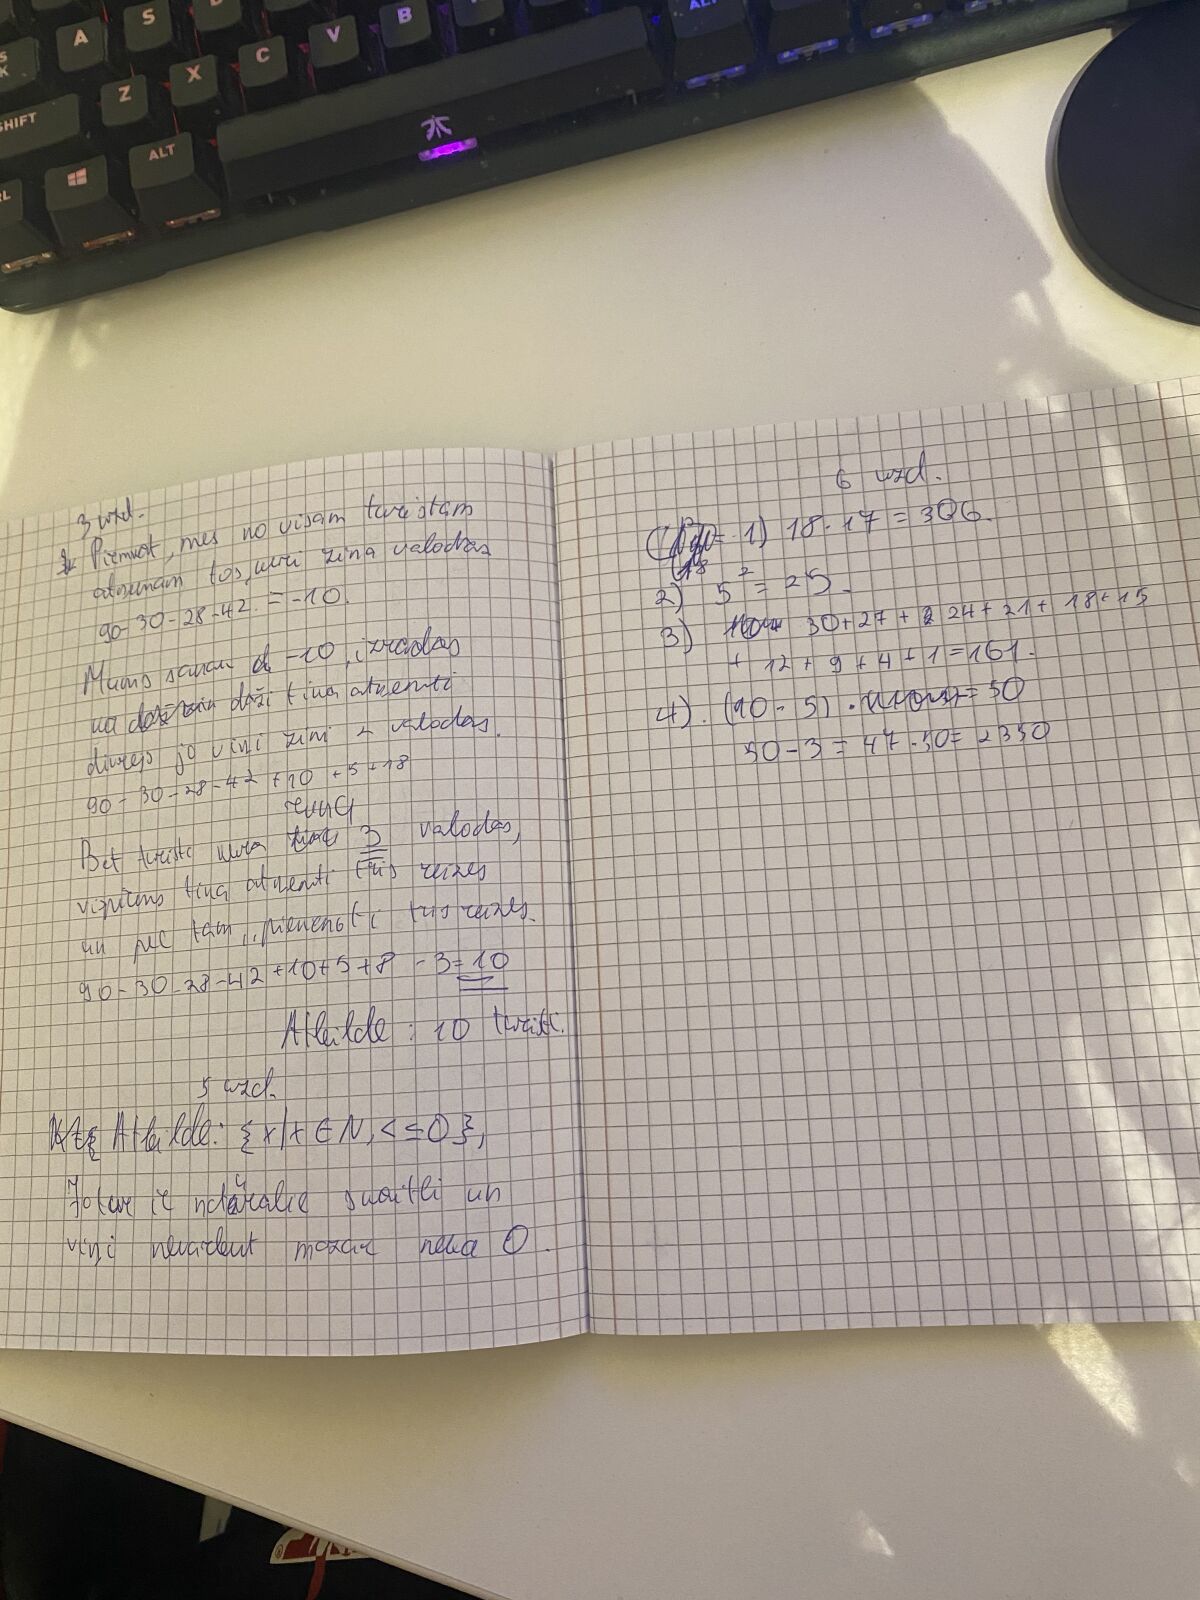 A S V B
Z X C
SHIFT
ALT
ALT
3 uzd.
Piemērot, mes no visam turistam
atņemam tos, kuri zina valodas
90-30-28-42 = -10.
Mums sanāk -10, izrādas
ka daži tika atņemti
divreiz jo viņi zini 2 valodas.
90-30-28-42+10+5+18
Bet turisti kura zina 3 valodas,
vispirms tika atņemti tris reizes
un pec tam, pievenoti tris reizes.
90-30-28-42+10+5+8-3=10
Atbilde: 10 turisti.
5 uzd.
Atbilde: {x|x∈N, <≤0},
ir naturalie skaitli un
viņi nevarbut mazak neka 0.
6 uzd.
1) 18·17=306.
18
2) 5²=25.
3) 30+27+24+21+18+15
+12+9+4+1=161.
4). (10-5)· =50
50-3=47·50=2350